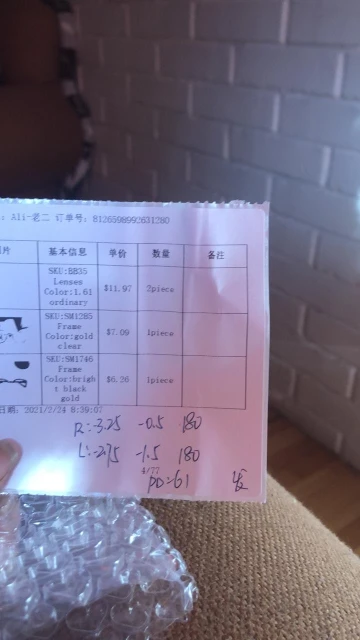 : Ali-老二 订单号: 8126598992631280
片 基本信息 单价 数量 备注
SKU:BB35
Lenses
Color:1.61
ordinary
$11.97 2piece
SKU:SM1285
Frame
Color:gold
clear
$7.09 1piece
SKU:SM1746
Frame
Color:brigh
t black
gold
$6.26 1piece
日期: 2021/2/24 8:39:07
R:-3.25 -0.5 180
L:-2.75 -1.5 180
4/77
PD=61 发